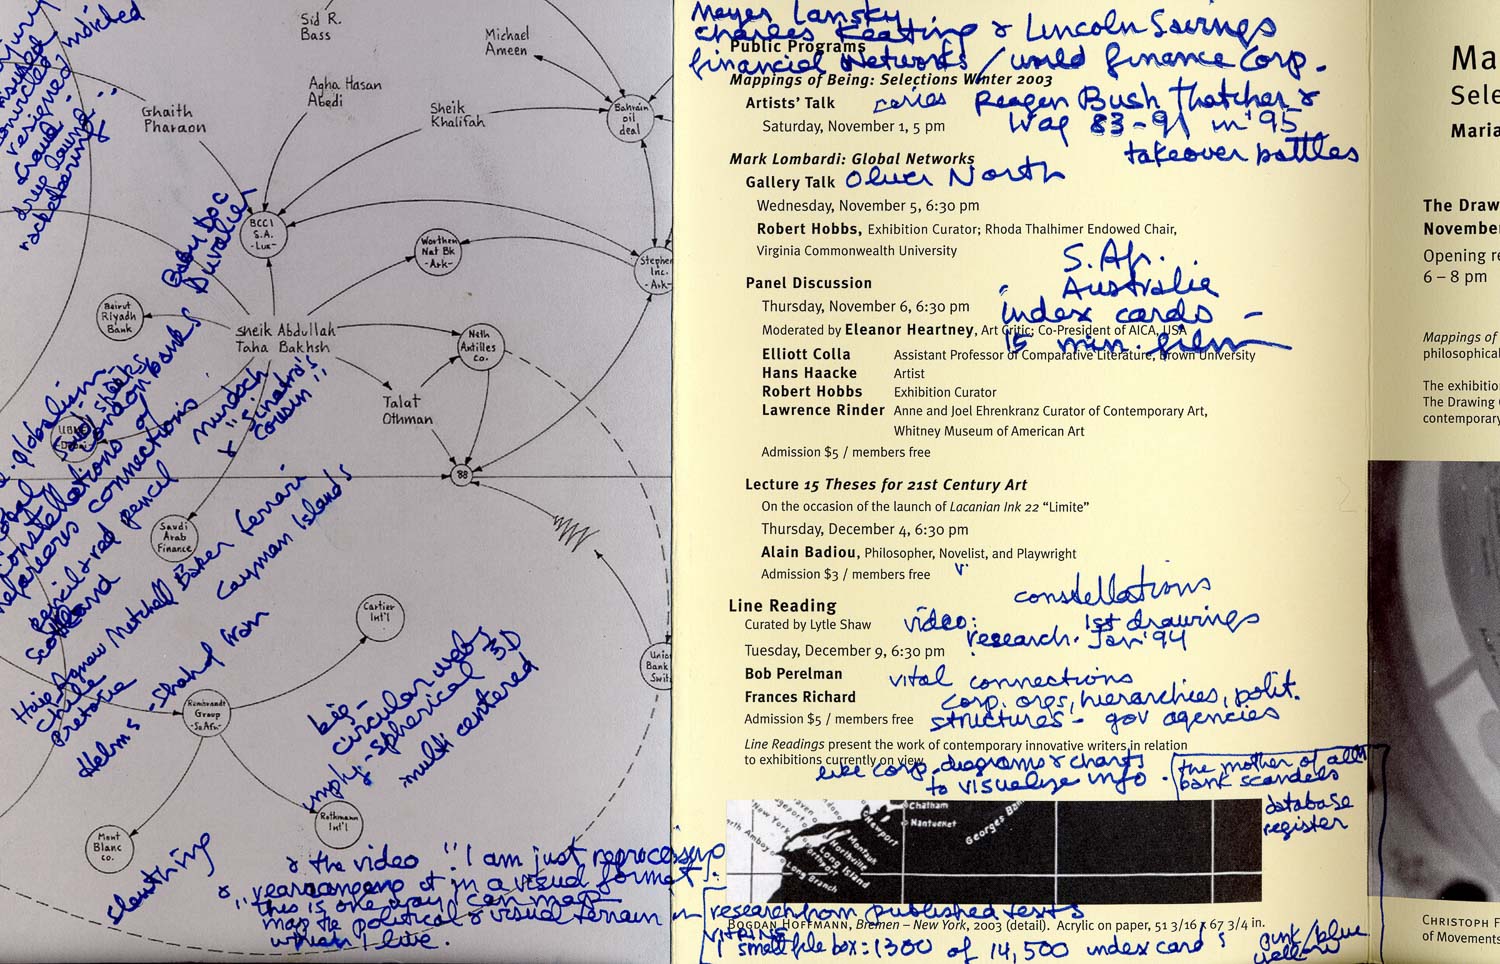 Sid R.
Bass
Michael
Ameen
Agha Hasan
Abedi
Ghaith
Pharaon
Sheik
Khalifah
Bahrain
oil
deal
BCCI
S.A.
-Lux-
Worthen
Nat Bk
-Ark-
Stephens
Inc.
-Ark-
Beirut
Riyadh
Bank
Sheik Abdullah
Taha Bakhsh
Neth
Antilles
Co.
Talat
Othman
'88
Saudi
Arab
Finance
Cartier
Int'l
Union
Bank
Swit
Rembrandt
Group
-So Afr.-
Rothmann
Int'l
Mont
Blanc
co.
indicted
convicted
resigned
fraud
drug laund
racketeering
Baby Doc
Duvalier
globalism
London banks
constellations of
nefarious connections
pencil + red pencil
Scotland
Murdoch
& "Sinatra's
cousin"
Haig Agnew Mitchell Baker Ferrari
Chile Cayman Islands
Pretoria
Helms - Shah of Iran
big -
circular webs
imply - spherical 3D
multi centered
sleuthing
& the video "I am just reprocessing
& rearranging it in a visual format".
"this is one way I can map
map the political & visual terrain in
which I live.
Meyer Lansky
Charles Keating & Lincoln Savings
financial networks / world finance Corp.
Public Programs
Mappings of Being: Selections Winter 2003
Artists' Talk
series Reagen Bush Thatcher &
Saturday, November 1, 5 pm
Iraq 83-91 in '95
takeover battles
Mark Lombardi: Global Networks
Gallery Talk
Oliver North
Wednesday, November 5, 6:30 pm
Robert Hobbs, Exhibition Curator; Rhoda Thalhimer Endowed Chair,
Virginia Commonwealth University
S. Afr.
Australia
Panel Discussion
index cards -
Thursday, November 6, 6:30 pm
Moderated by Eleanor Heartney, Art Critic; Co-President of AICA, USA
15 min. film
Elliott Colla Assistant Professor of Comparative Literature, Brown University
Hans Haacke Artist
Robert Hobbs Exhibition Curator
Lawrence Rinder Anne and Joel Ehrenkranz Curator of Contemporary Art,
Whitney Museum of American Art
Admission $5 / members free
Lecture 15 Theses for 21st Century Art
On the occasion of the launch of Lacanian Ink 22 “Limite”
Thursday, December 4, 6:30 pm
Alain Badiou, Philosopher, Novelist, and Playwright
Admission $3 / members free
constellations
Line Reading
Curated by Lytle Shaw
video: 1st drawings
research. Jan '94
Tuesday, December 9, 6:30 pm
Bob Perelman
vital connections
Frances Richard
corp. orgs, hierarchies, polit.
Admission $5 / members free
structures - gov agencies
Line Readings present the work of contemporary innovative writers in relation
to exhibitions currently on view.
like corp. diagrams & charts
to visualize info.
the mother of all
bank scandals
database
register
Chatham
Nantucket
Georges Ban
New York
Newport
Montauk
Northville
Long Island
Long Branch
research from published texts
BOGDAN HOFFMANN, Bremen – New York, 2003 (detail). Acrylic on paper, 51 3/16 x 67 3/4 in.
VITRINE
1 small file box: 1300 of 14,500 index card's
pink/blue
yellow
Ma
Sele
Maria
The Draw
Novembe
Opening re
6 – 8 pm
Mappings of
philosophica
The exhibitio
The Drawing
contemporary
CHRISTOPH F
of Movements